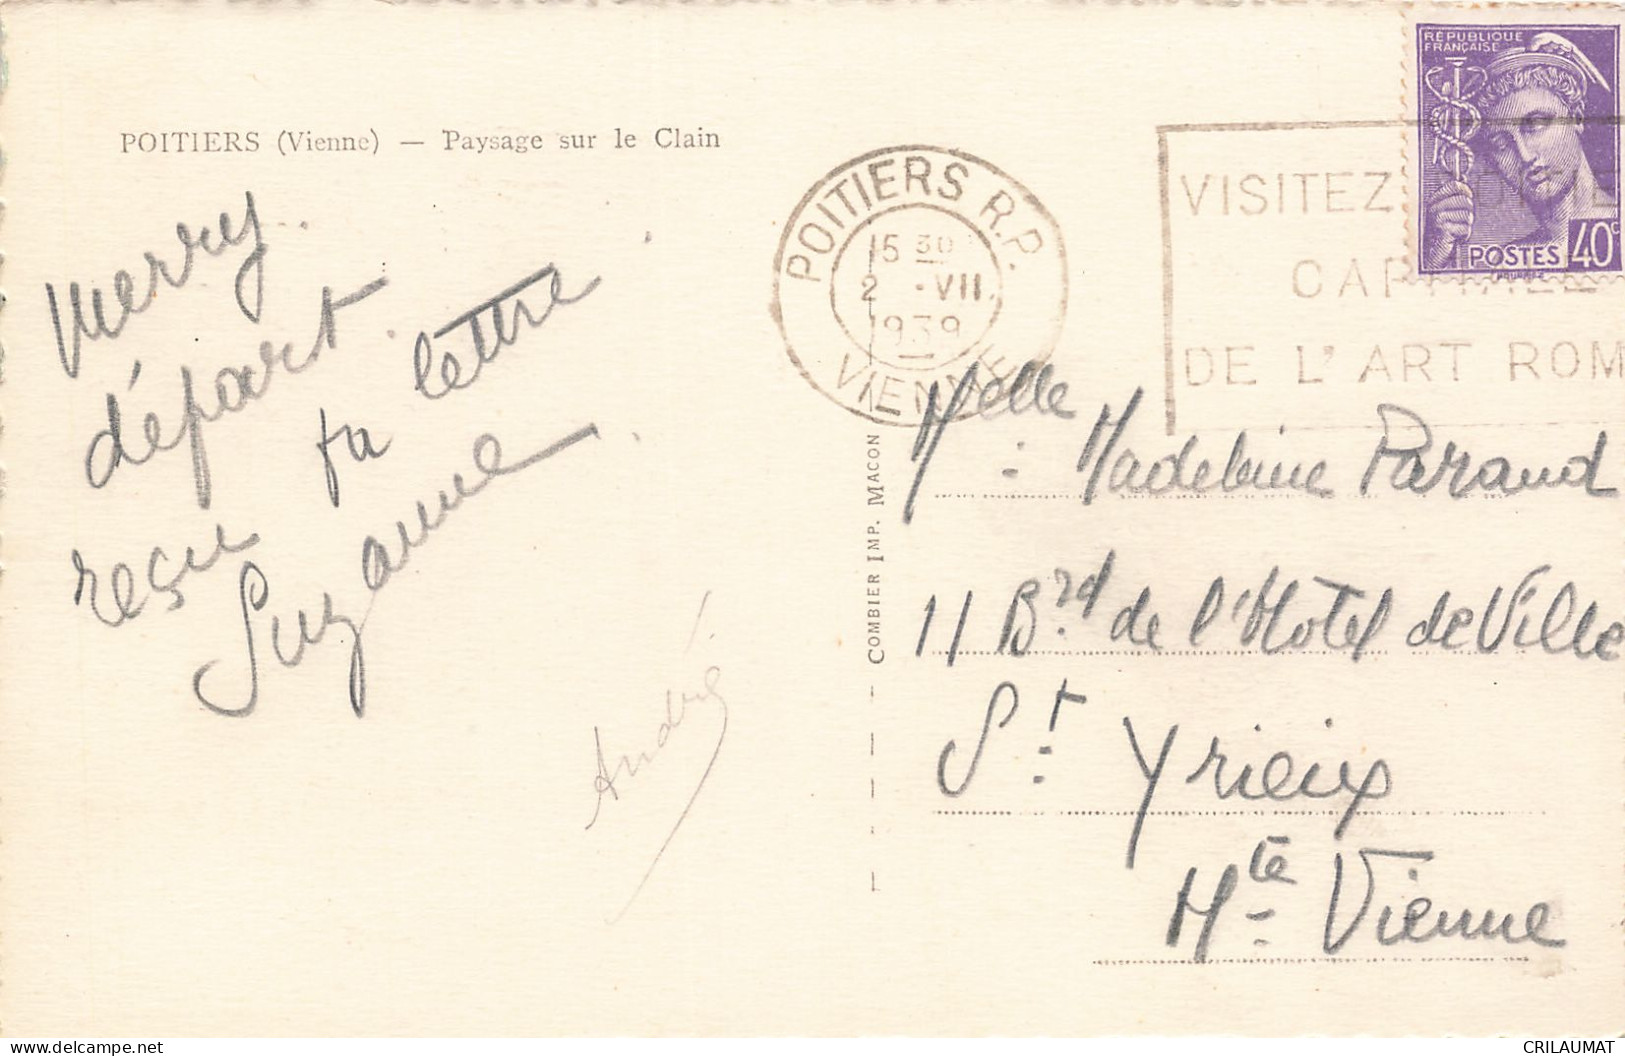 POITIERS (Vienne) — Paysage sur le Clain
Merry
départ.
reçu ta lettre.
Suzanne.
André
COMBIER IMP. MACON
POITIERS R.P.
15 30
2 -VII
1939
VIENNE
VISITEZ
CAPITALE
DE L'ART ROM
RÉPUBLIQUE
FRANÇAISE
POSTES 40c
Melle Madeleine Paraud
11 Brd de l'Hotel de Ville
St Yrieix
Hte Vienne
delcampe.net
CRILAUMAT